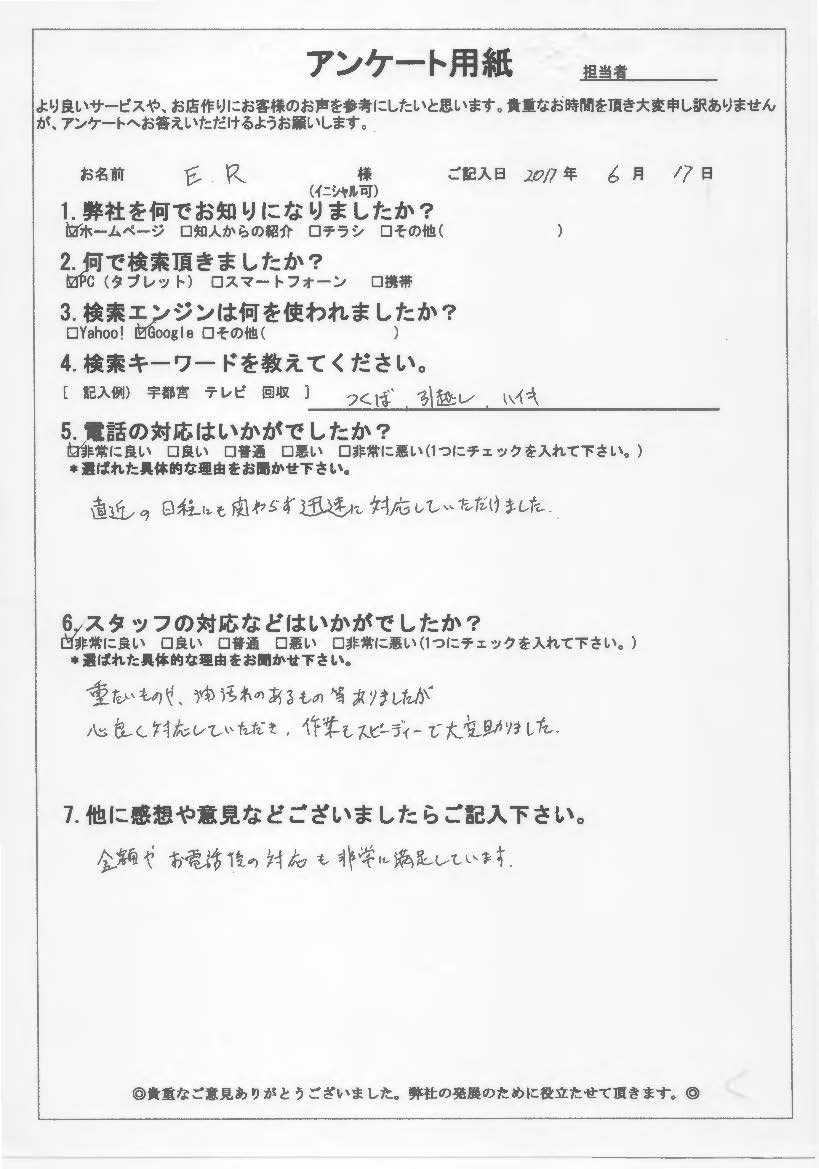 アンケート用紙
担当者
より良いサービスや、お店作りにお客様のお声を参考にしたいと思います。貴重なお時間を頂き大変申し訳ありません
が、アンケートへお答えいただけるようお願いします。
お名前 E.R 様 ご記入日 2017 年 6 月 17 日
(イニシャル可)
1.弊社を何でお知りになりましたか？
☑ホームページ □知人からの紹介 □チラシ □その他( )
2.何で検索頂きましたか？
☑PC（タブレット） □スマートフォーン □携帯
3.検索エンジンは何を使われましたか？
□Yahoo! ☑Google □その他( )
4.検索キーワードを教えてください。
[ 記入例） 宇都宮 テレビ 回収 ] つくば、引越し、ハイキ
5.電話の対応はいかがでしたか？
☑非常に良い □良い □普通 □悪い □非常に悪い(1つにチェックを入れて下さい。)
＊選ばれた具体的な理由をお聞かせ下さい。
直近の日程にも関わらず迅速に対応していただけました.
6.スタッフの対応などはいかがでしたか？
☑非常に良い □良い □普通 □悪い □非常に悪い(1つにチェックを入れて下さい。)
＊選ばれた具体的な理由をお聞かせ下さい。
重たいものや、油汚れのあるもの等ありましたが
心良く対応していただき、作業もスピーディーで大変助かりました.
7.他に感想や意見などございましたらご記入下さい。
金額やお電話後の対応も非常に満足しています.
◎貴重なご意見ありがとうございました。弊社の発展のために役立たせて頂きます。◎